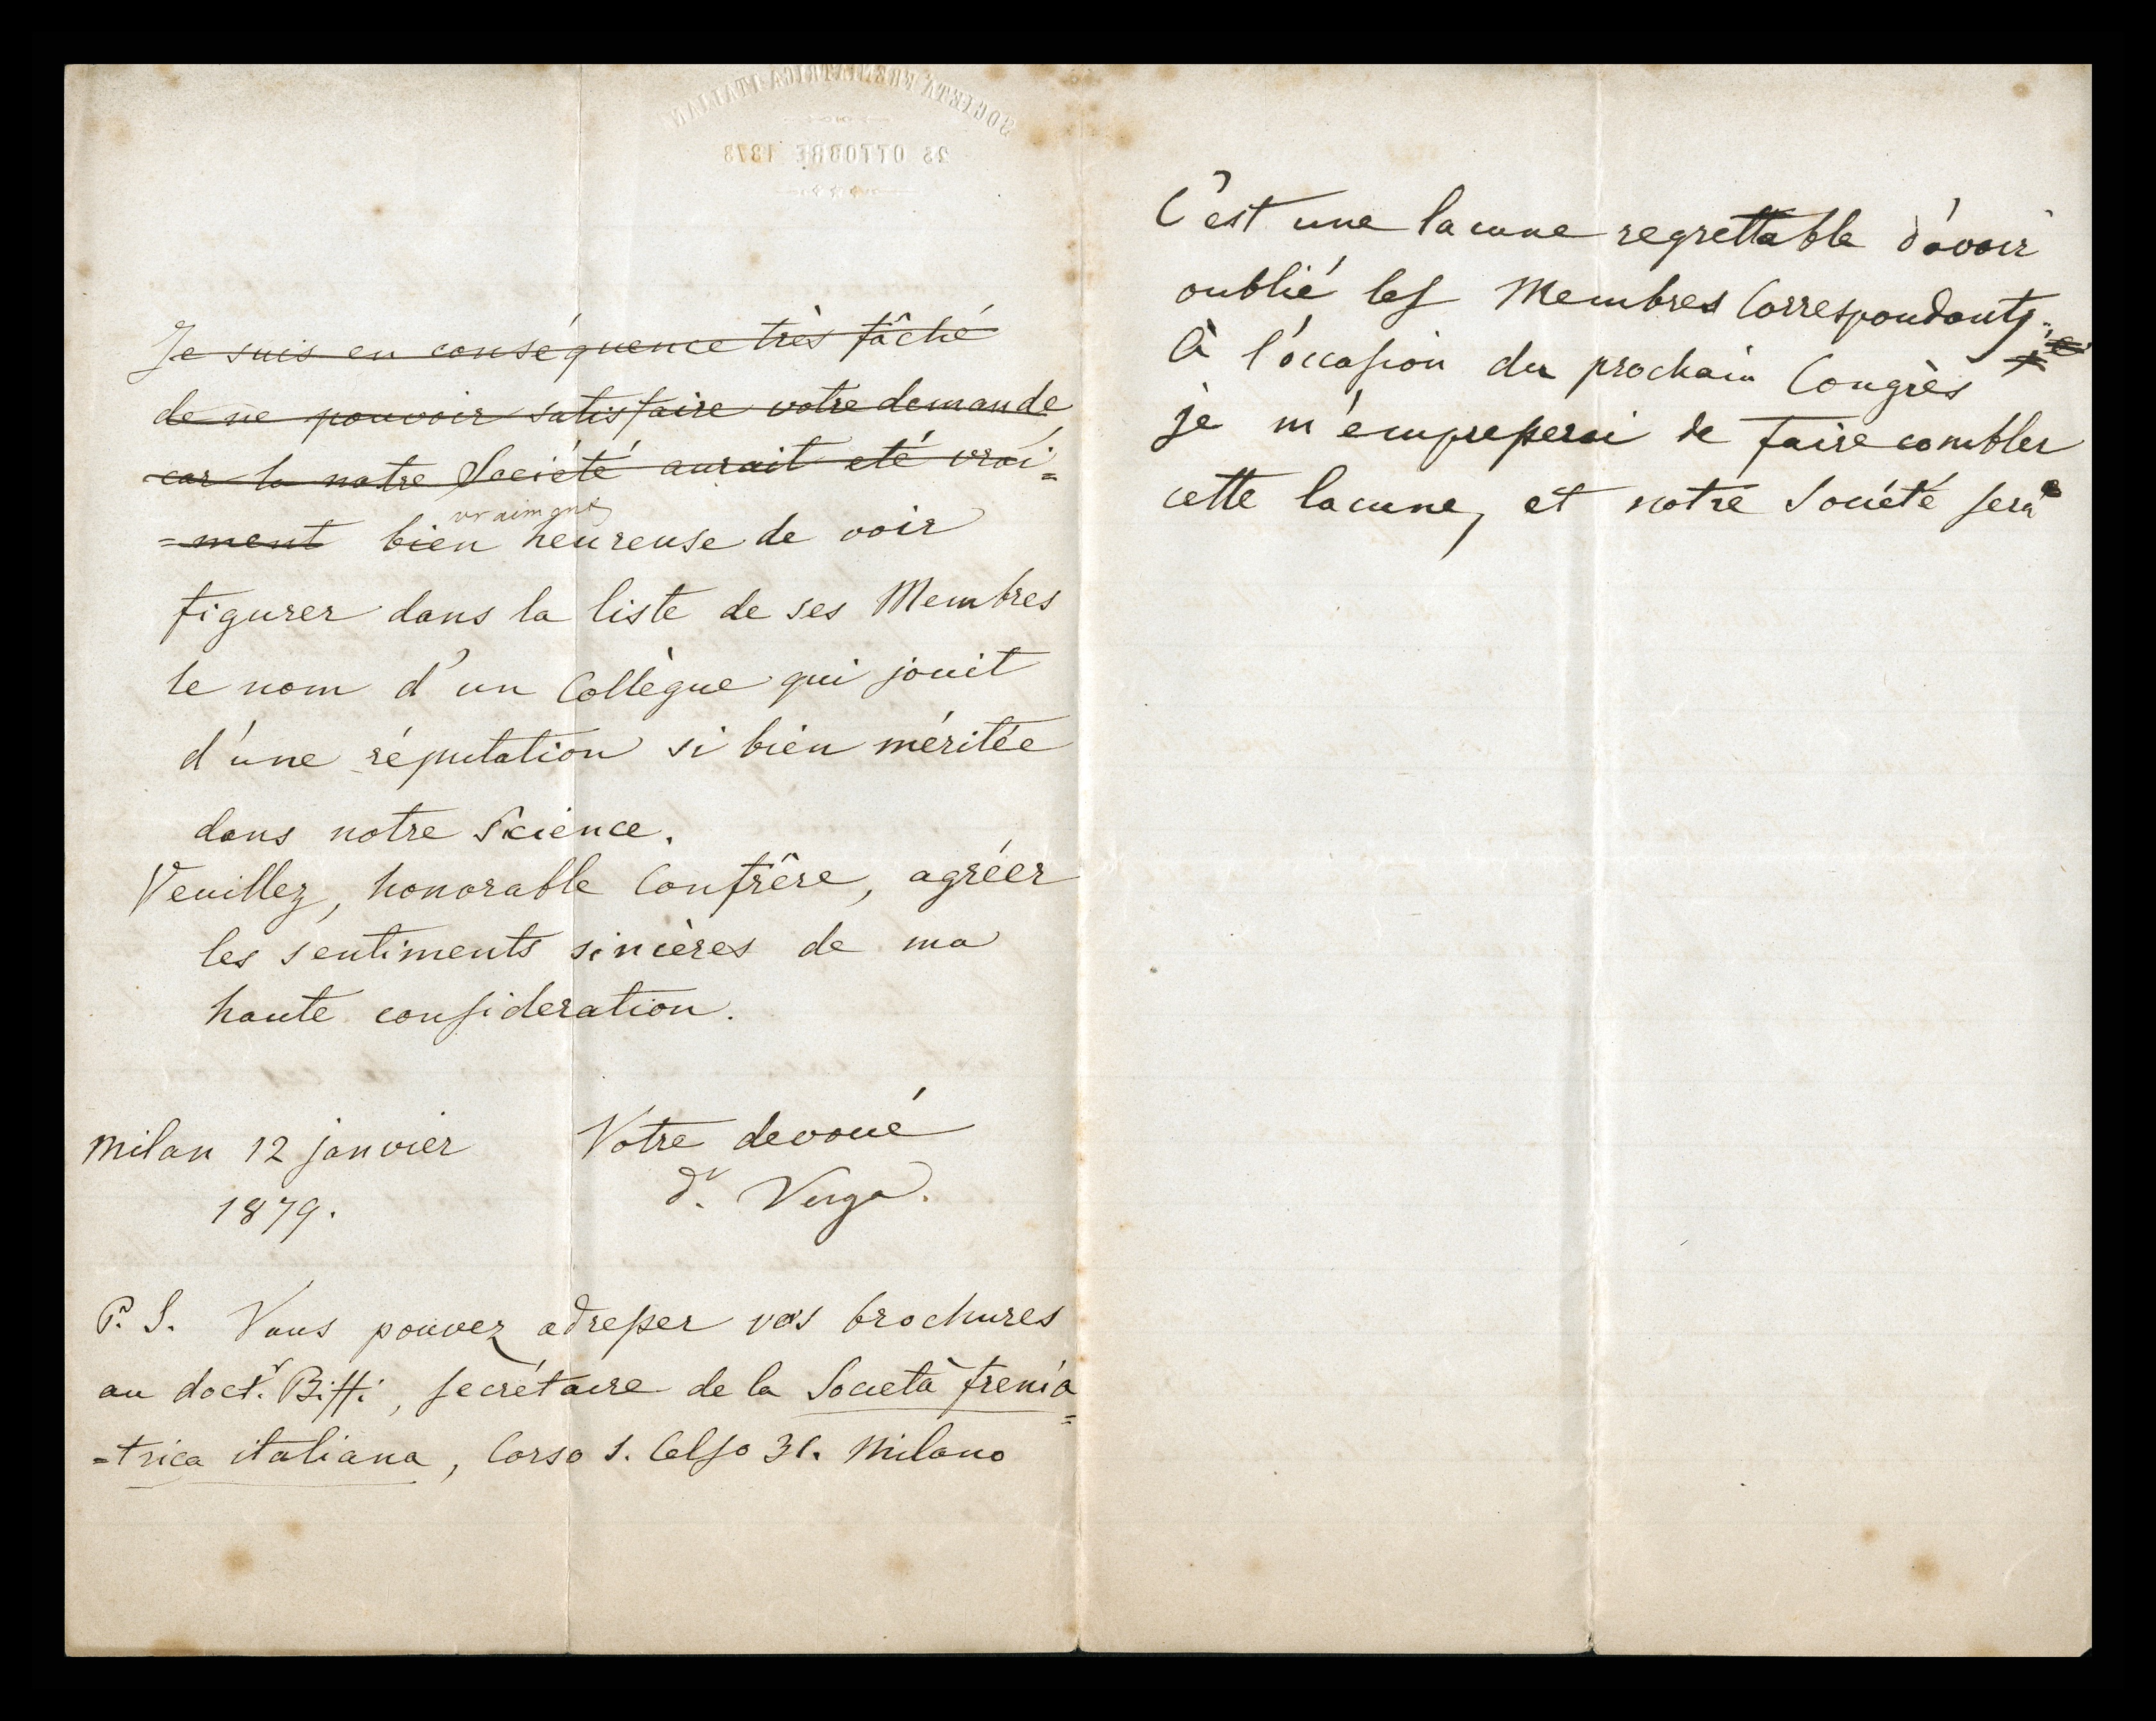 SOCIETÀ FRENIATRICA ITALIANA
23 OTTOBRE 1873
Je suis en conséquence très fâché
de ne pouvoir satisfaire votre demande,
car la notre Société aurait eté vrai=
=ment bien vraiment heureuse de voir
figurer dans la liste de ses Membres
le nom d'un Collègue qui jouit
d'une réputation si bien méritée
dans notre Science.
Veuillez, honorable Confrêre, agréer
les sentiments sincères de ma
haute consideration.
Milan 12 janvier
1879.
Votre devoué
dr. Verga.
P. S. Vous pouvez adresser vos brochures
au doctr. Biffi, secrétaire de la Società frenia=
=trica italiana, Corso S. Celso 31. Milano
C'est une lacune regrettable d'avoir
oublié les Membres Correspondants.
À l'occasion du prochain Congrès
je m'empresserai de faire combler
cette lacune, et notre Société sera